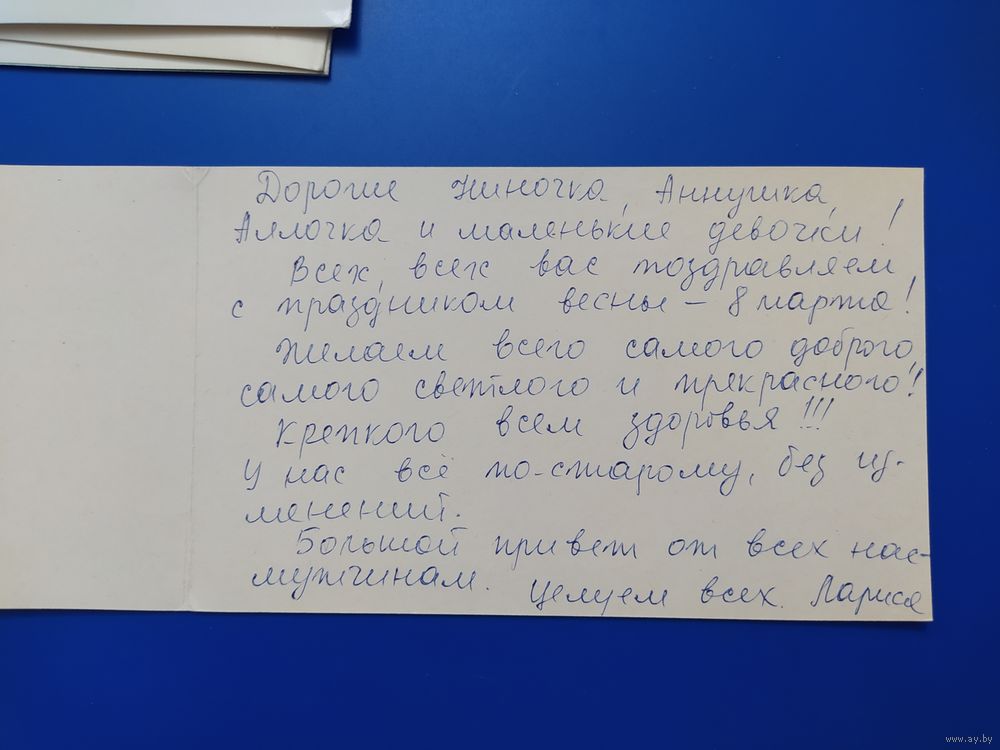 Дорогие Ниночка, Аннушка,
Аллочка и маленькие девочки!
Всех, всех вас поздравляем
с праздником весны – 8 марта!
Желаем всего самого доброго,
самого светлого и прекрасного!
Крепкого всем здоровья!!!
У нас всё по-старому, без из-
менений.
Большой привет от всех нас –
мужчинам. Целуем всех. Лариса
www.ay.by